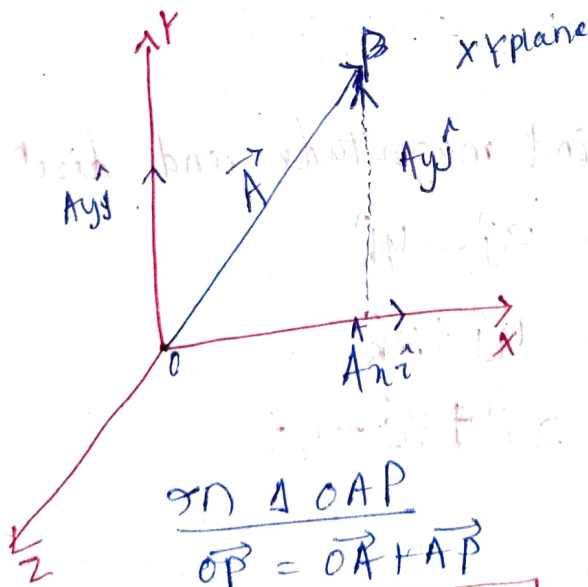 Y
P
XY plane
Ayĵ
A⃗
Ayĵ
O
A
X
Axî
Z
In Δ OAP
O⃗P = O⃗A + A⃗P